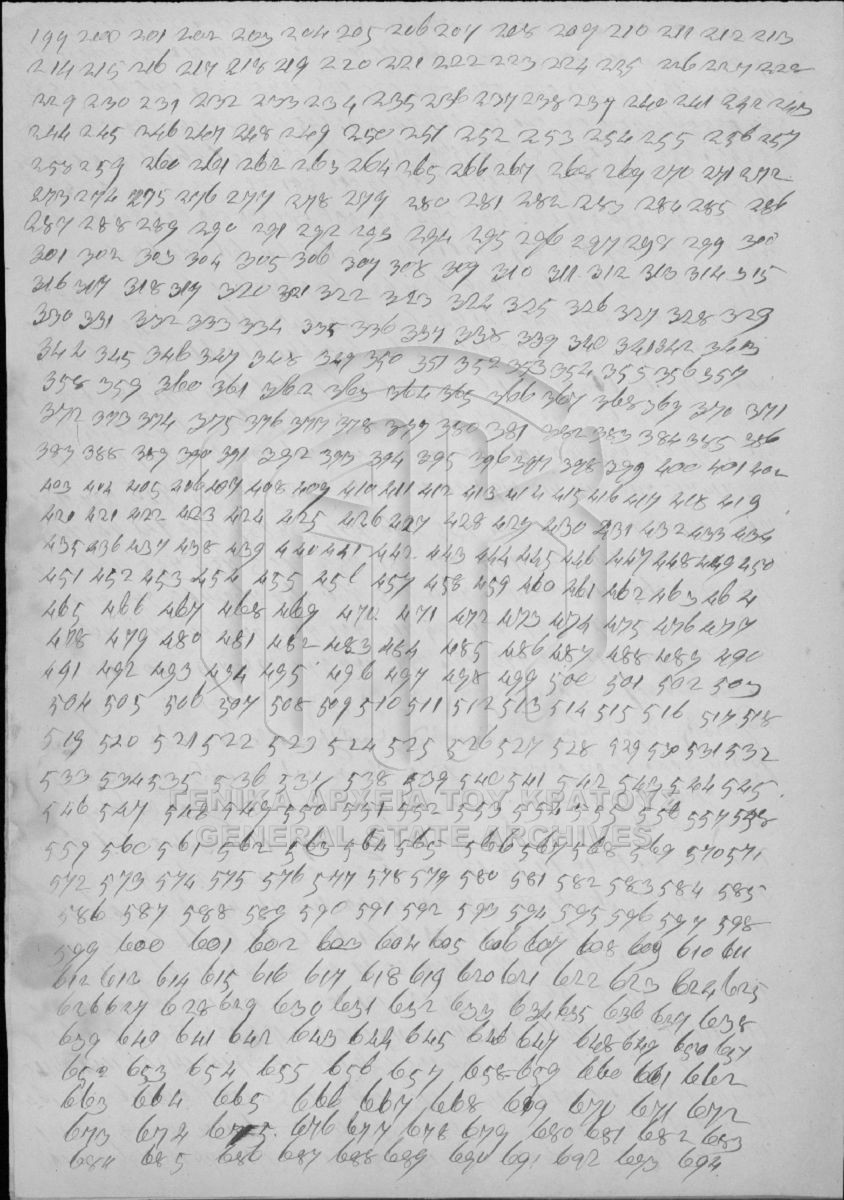 199 200 201 202 203 204 205 206 207 208 209 210 211 212 213
214 215 216 217 218 219 220 221 222 223 224 225 226 227 228
229 230 231 232 233 234 235 236 237 238 239 240 241 242 243
244 245 246 247 248 249 250 251 252 253 254 255 256 257
258 259 260 261 262 263 264 265 266 267 268 269 270 271 272
273 274 275 276 277 278 279 280 281 282 283 284 285 286
287 288 289 290 291 292 293 294 295 296 297 298 299 300
301 302 303 304 305 306 307 308 309 310 311 312 313 314 315
316 317 318 319 320 321 322 323 324 325 326 327 328 329
330 331 332 333 334 335 336 337 338 339 340 341 342 343
344 345 346 347 348 349 350 351 352 353 354 355 356 357
358 359 360 361 362 363 364 365 366 367 368 369 370 371
372 373 374 375 376 377 378 379 380 381 382 383 384 385 386
387 388 389 390 391 392 393 394 395 396 397 398 399 400 401 402
403 404 405 406 407 408 409 410 411 412 413 414 415 416 417 418 419
420 421 422 423 424 425 426 427 428 429 430 431 432 433 434
435 436 437 438 439 440 441 442 443 444 445 446 447 448 449 450
451 452 453 454 455 456 457 458 459 460 461 462 463 464
465 466 467 468 469 470 471 472 473 474 475 476 477
478 479 480 481 482 483 484 485 486 487 488 489 490
491 492 493 494 495 496 497 498 499 500 501 502 503
504 505 506 507 508 509 510 511 512 513 514 515 516 517 518
519 520 521 522 523 524 525 526 527 528 529 530 531 532
533 534 535 536 537 538 539 540 541 542 543 544 545
ΓΕΝΙΚΑ ΑΡΧΕΙΑ ΤΟΥ ΚΡΑΤΟΥΣ
546 547 548 549 550 551 552 553 554 555 556 557 558
GENERAL STATE ARCHIVES
559 560 561 562 563 564 565 566 567 568 569 570 571
572 573 574 575 576 577 578 579 580 581 582 583 584 585
586 587 588 589 590 591 592 593 594 595 596 597 598
599 600 601 602 603 604 605 606 607 608 609 610 611
612 613 614 615 616 617 618 619 620 621 622 623 624 625
626 627 628 629 630 631 632 633 634 635 636 637 638
639 640 641 642 643 644 645 646 647 648 649 650 651
652 653 654 655 656 657 658 659 660 661 662
663 664 665 666 667 668 669 670 671 672
673 674 675 676 677 678 679 680 681 682 683
684 685 686 687 688 689 690 691 692 693 694